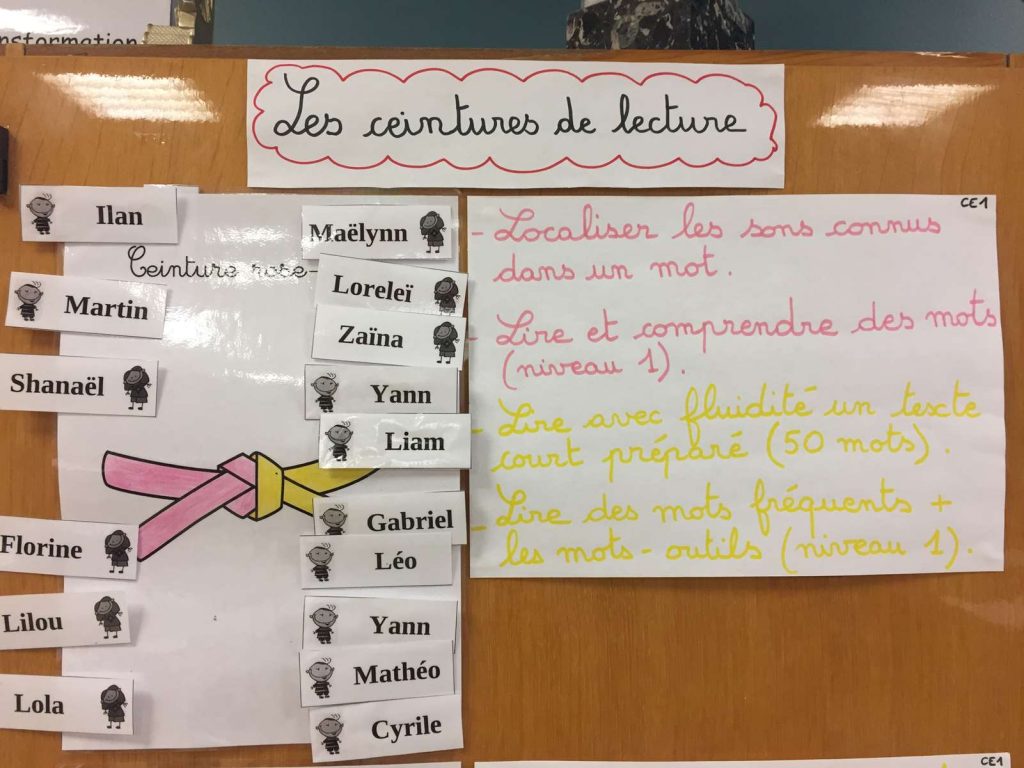 nsformation
Les ceintures de lecture
Ilan
Martin
Shanaël
Florine
Lilou
Lola
Ceinture rose-
Maëlynn
Loreleï
Zaïna
Yann
Liam
Gabriel
Léo
Yann
Mathéo
Cyrile
CE1
- Localiser les sons connus
dans un mot.
- Lire et comprendre des mots
(niveau 1).
- Lire avec fluidité un texte
court préparé (50 mots).
- Lire des mots fréquents +
les mots-outils (niveau 1).
CE1